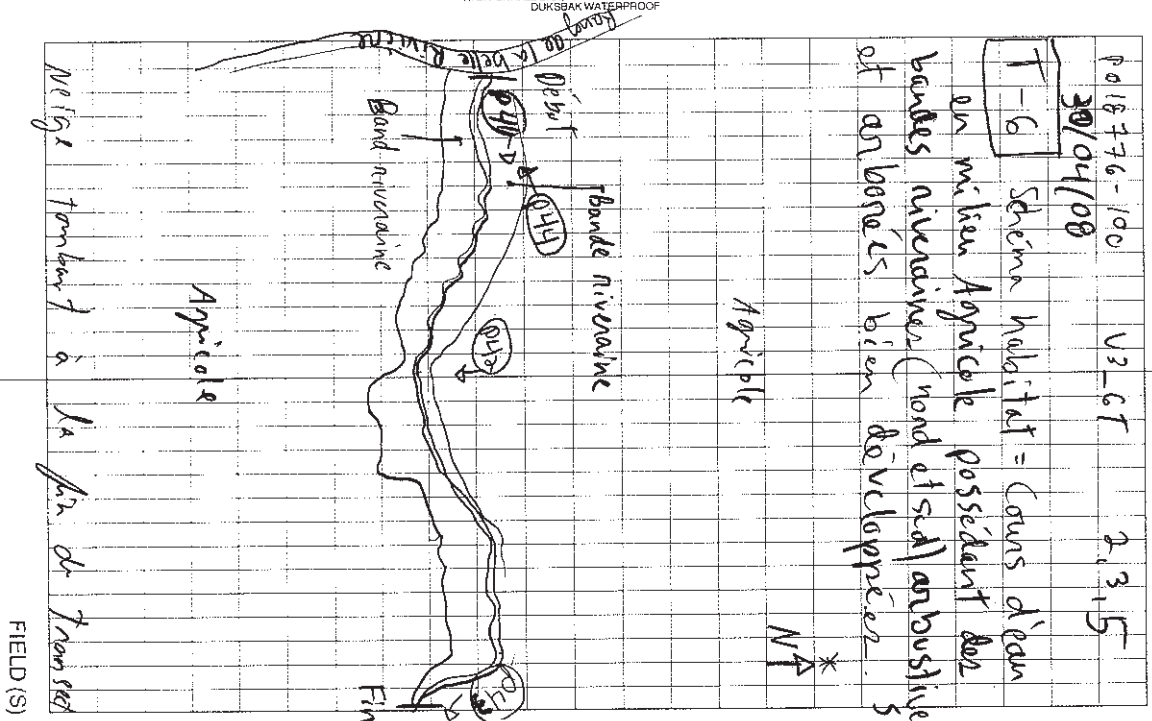 DUKSBAK WATERPROOF
P018776-100 V3_GT 2,3,5
30/04/08
T-6 Schéma habitat = Cours d'eau
en milieu Agricole possédant des
bandes riveraines (nord et sud) arbustive
et arborés bien développées. 5
N
Agricole
Bande riveraine
Début
P44
Rang de la belle Rivière
Band riveraine
Fin
Agricole
Neige tombant à la fin du transect
FIELD (S)